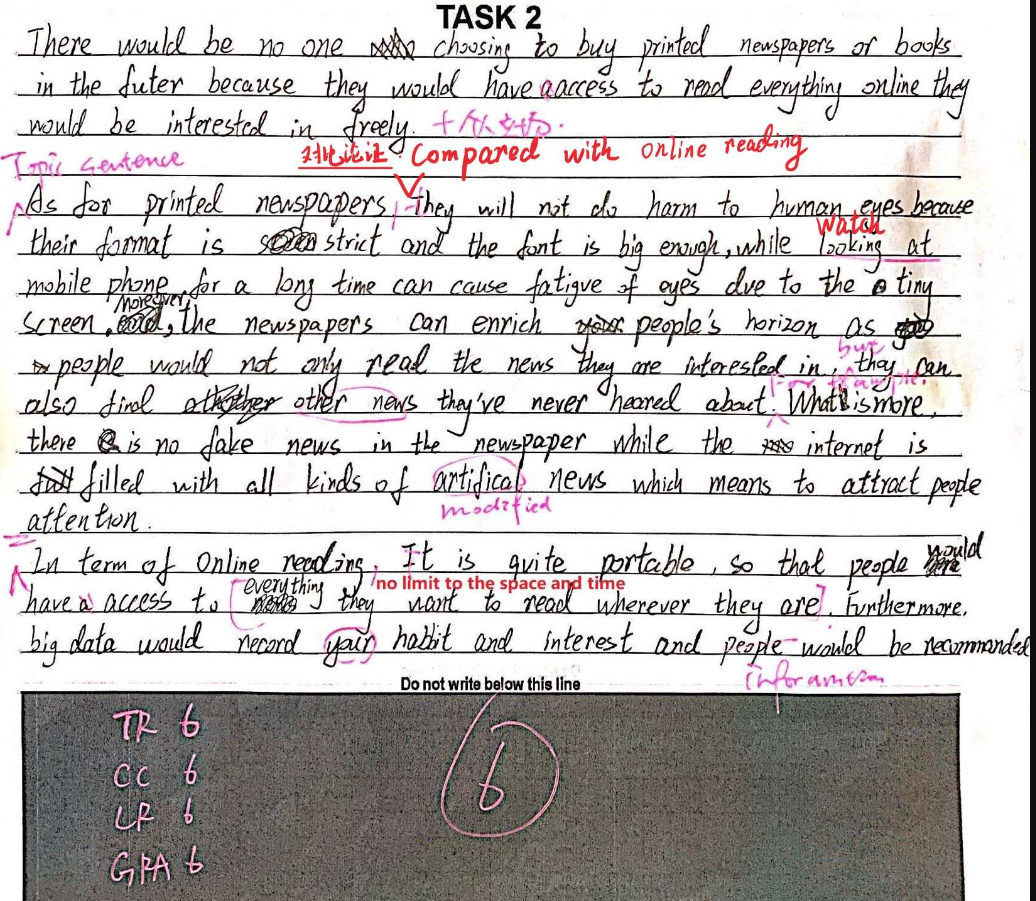 TASK 2
There would be no one choosing to buy printed newspapers or books
in the futer because they would have aaccess to read everything online they
would be interested in freely.
Topic sentence
对比论证. Compared with online reading
As for printed newspapers, They will not do harm to human eyes because
watch
their format is strict and the font is big enough, while looking at
mobile phone for a long time can cause fatigue of eyes due to the tiny
moreover,
screen. the newspapers can enrich people's horizon as
but
people would not only read the news they are interested in, they can
For example.
also find other news they've never heared about. What is more,
there is no fake news in the newspaper while the internet is
filled with all kinds of artifical news which means to attract people
modified
attention.
In term of Online reading, It is quite portable, so that people would
everything no limit to the space and time
have a access to they want to read wherever they are. Furthermore,
big data would record your habbit and interest and people would be recommanded
Do not write below this line
TR 6
CC 6
LR 6
GRA 6
6